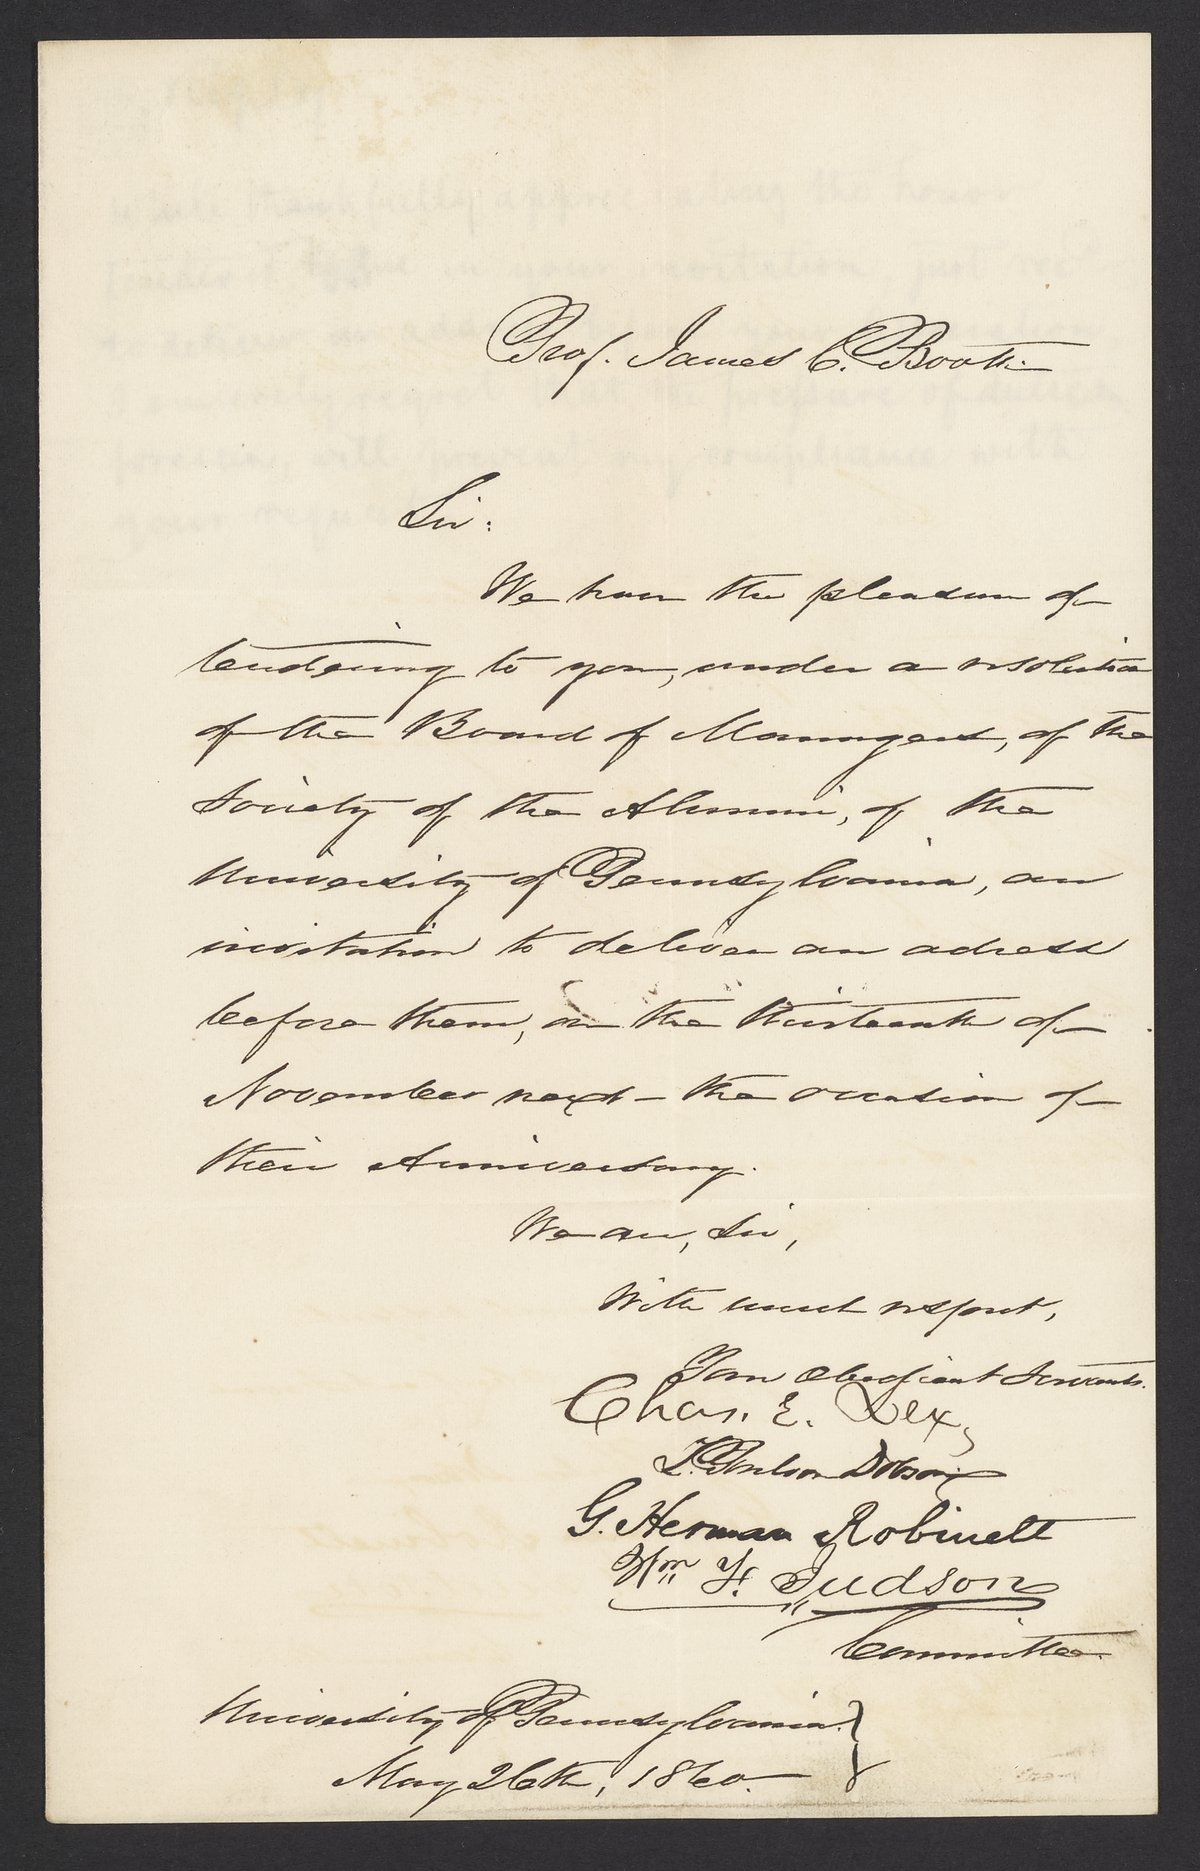 Prof. James C. Booth.
Sir:
We have the pleasure of
tendering to you, under a resolution
of the Board of Managers, of the
Society of the Alumni, of the
University of Pennsylvania, an
invitation to deliver an adress
before them, on the thirteenth of
November next – the occasion of
their Anniversary.
We are, Sir,
With much respect,
Your obedient servants.
Chas. E. Lex,
Dobson
G. Herman Robinett
Wm. H. Judson
Committee.
University of Pennsylvania.
May 26th, 1860.